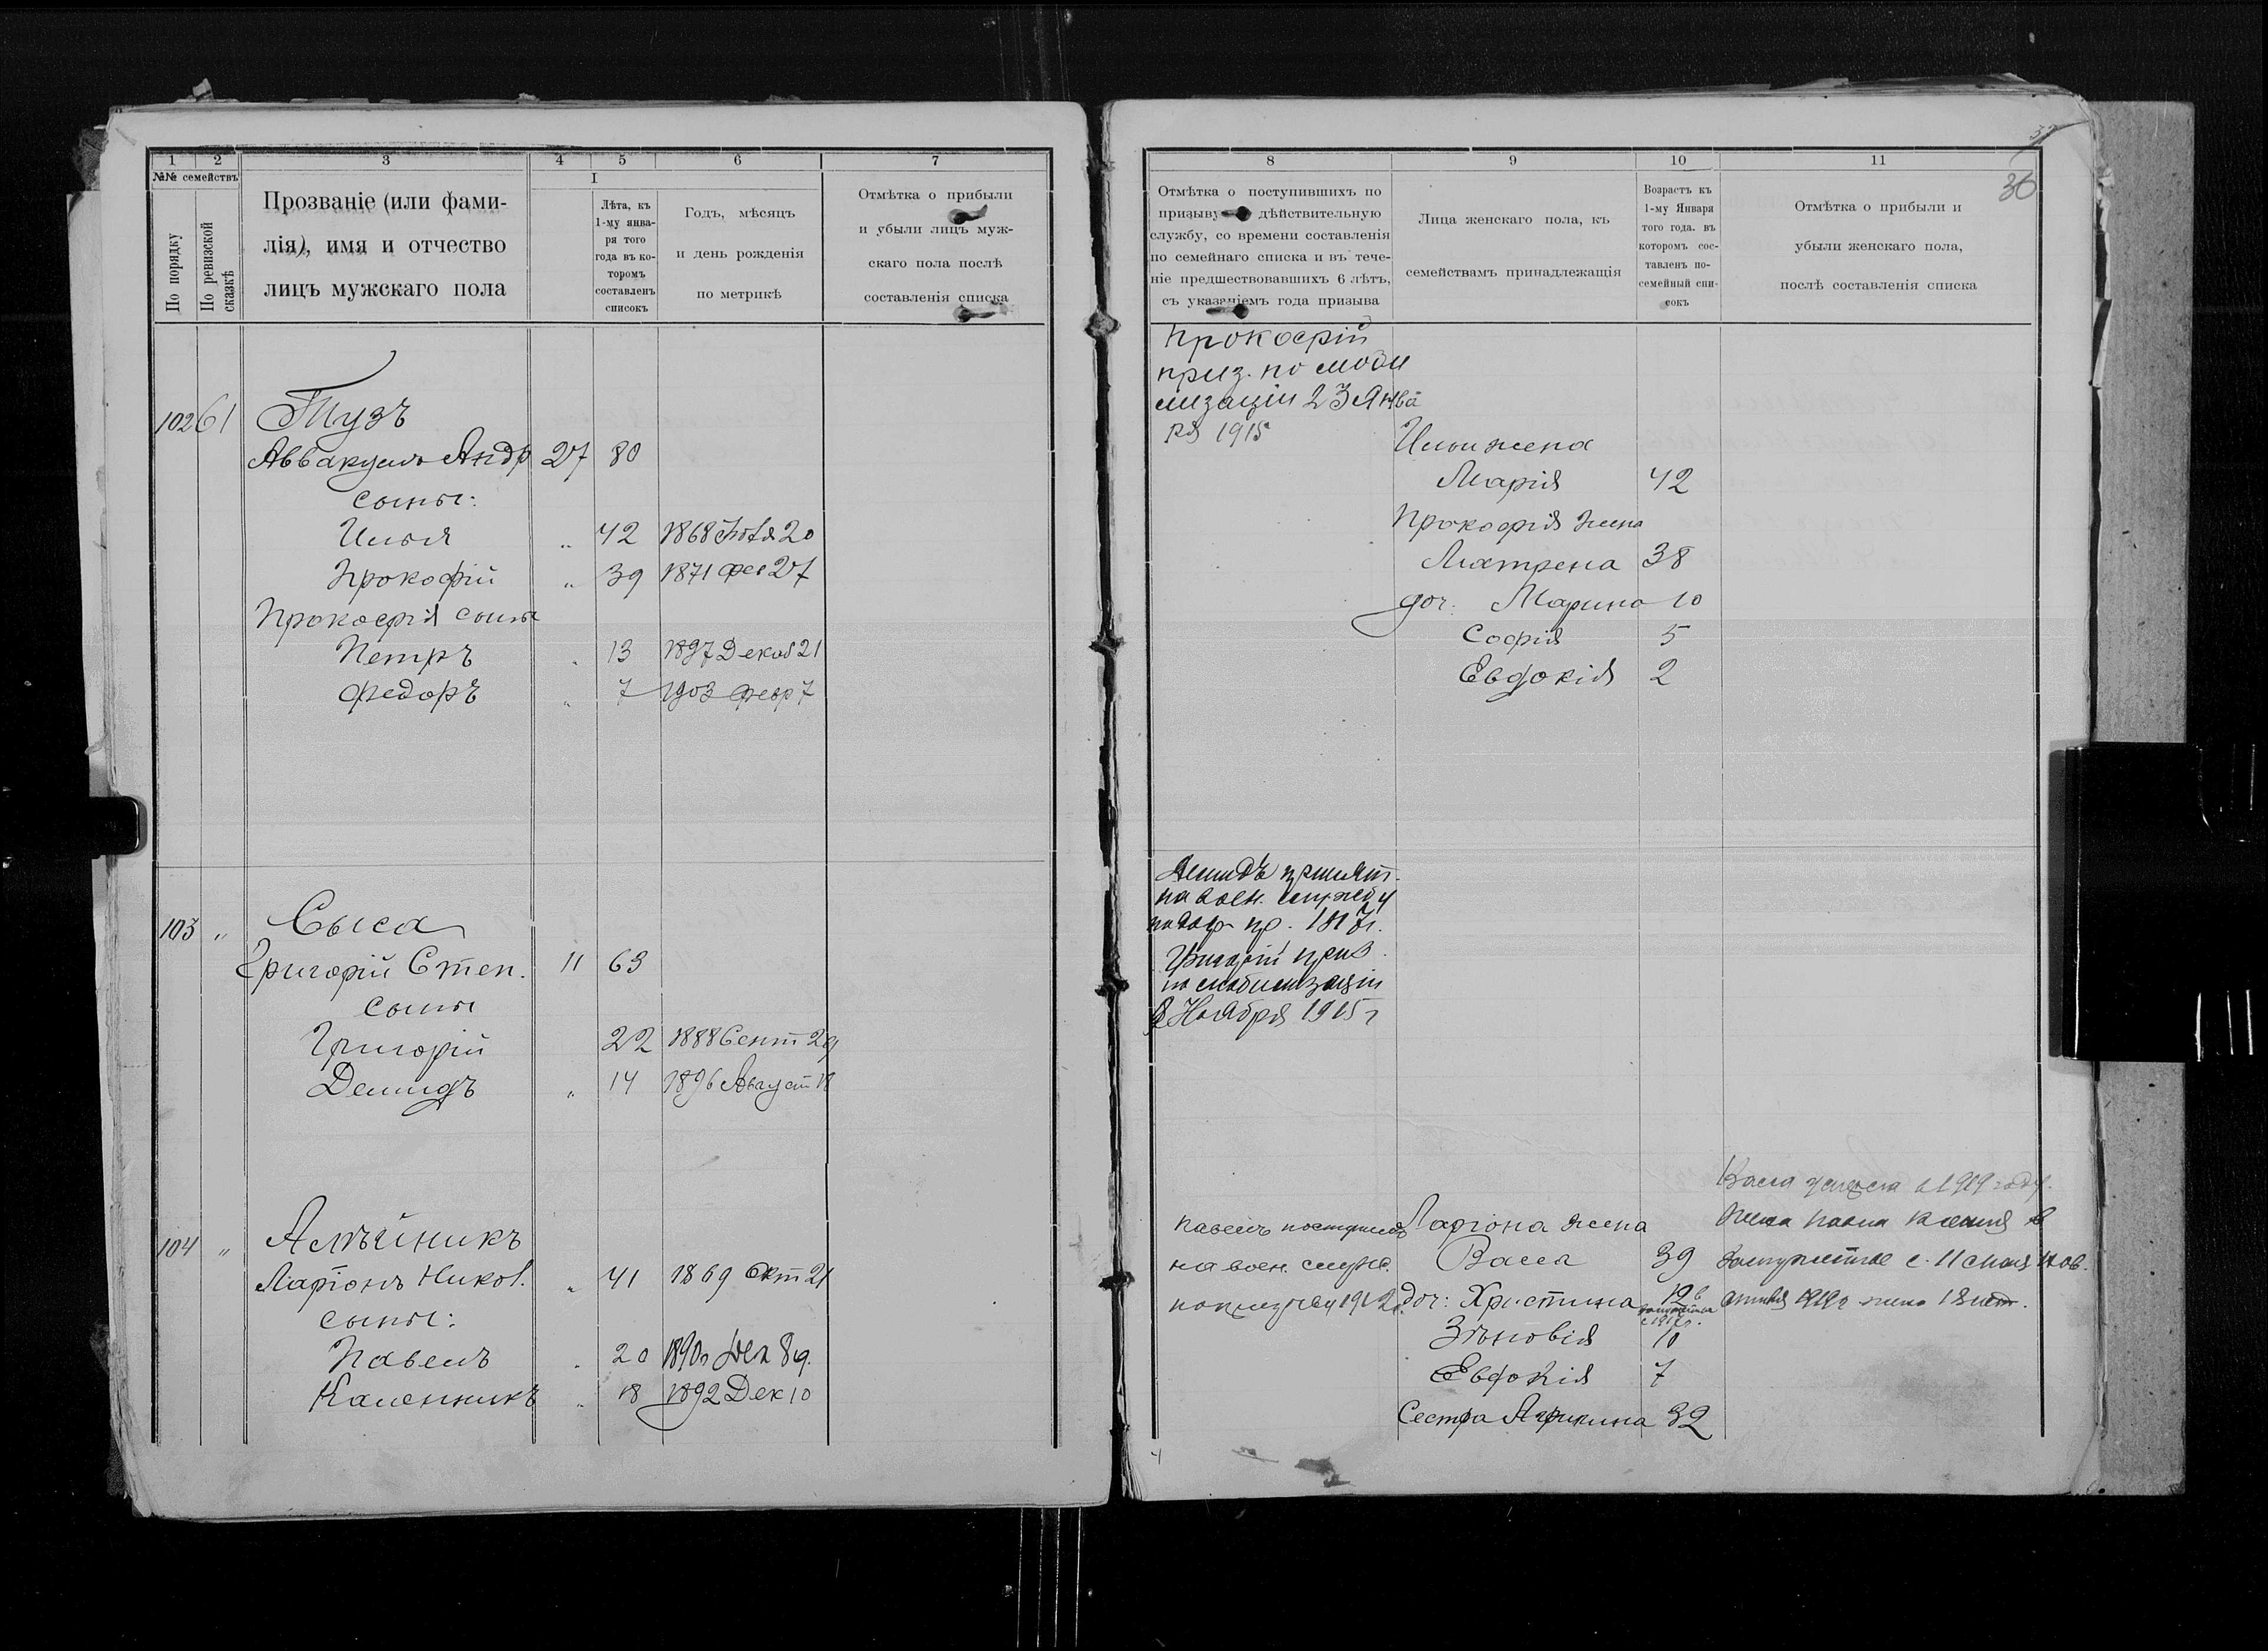 1 2 3 4 5 6 7
№№ семействъ
По порядку
По ревизской сказкѣ
Прозваніе (или фами-
лія), имя и отчество
лицъ мужскаго пола
I
Лѣта, къ
1-му янва-
ря того
года въ ко-
торомъ
составленъ
списокъ
Годъ, мѣсяцъ
и день рожденія
по метрикѣ
Отмѣтка о прибыли
и убыли лицъ муж-
скаго пола послѣ
составленія списка
102 61 Тузъ
Аввакумъ Андр 27 80
сыны:
Илья „ 42 1868 20
Прокофій „ 39 1871 фев 27
Прокофія сыны
Петръ „ 13 1897 Декаб 21
Федоръ „ 7 1903 февр 7
103 „ Сыса
Григорій Степ. 11 63
сыны
Григорій 22 1888 Сент 29
Демидъ „ 14 1896 Август 18
104 „ Алѣйникъ
Ларіонъ Никол. „ 41 1869 Окт 21
сыны:
Павелъ „ 20 1890г 
Каленникъ „ 18 1892 Дек 10
36
8 9 10 11
Отмѣтка о поступившихъ по
призыву дѣйствительную
службу, со времени составленія
по семейнаго списка и въ тече-
ніе предшествовавшихъ 6 лѣтъ,
съ указаніемъ года призыва
Лица женскаго пола, къ
семействамъ принадлежащія
Возрастъ къ
1-му Января
того года. въ
которомъ сос-
тавленъ по-
семейный спи-
сокъ
Отмѣтка о прибыли и
убыли женскаго пола,
послѣ составленія списка
Прокофій
приз. по моби
лизаціи 23 Янва
ря 1915
Ильи жена
Марія 42
Прокофія жена
Матрена 38
доч. Марина 10
Софія 5
Евдокія 2
Демидъ принят.
на воен. службу
пр. 1917г.
Григорій приз.
по мобилизаціи
Ноября 1915г
Васса 1919 году.
Павелъ поступилъ Ларіона жена
на воен. служб. Васса 39
по призыву 1912г. доч: Христина 12
Зѣновія 10
Евфокія 7
Сестра 32